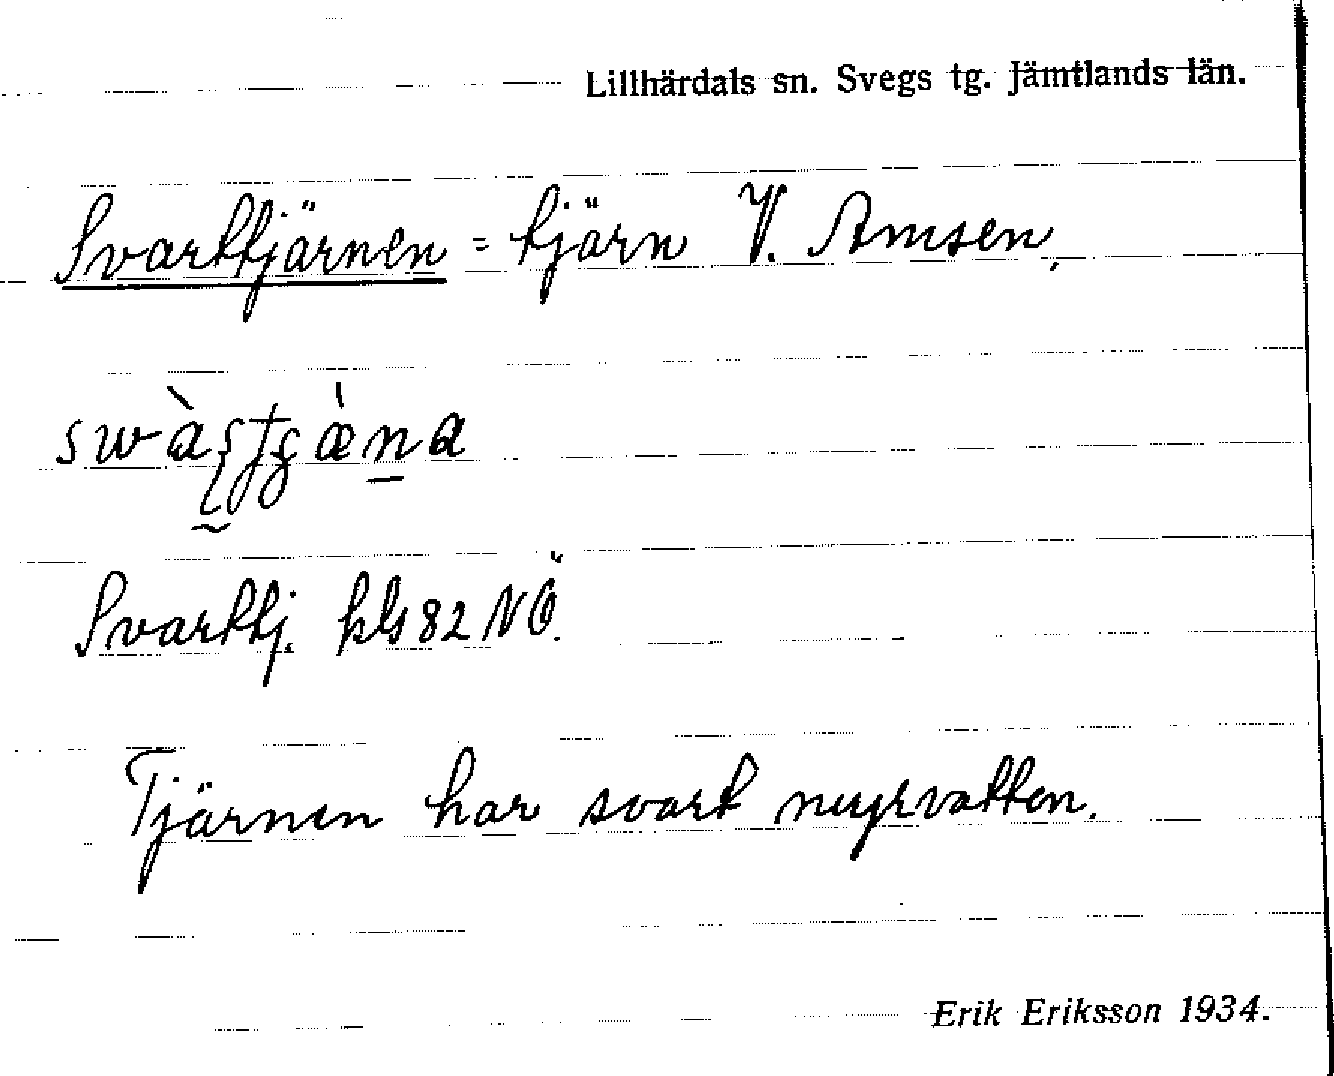 Lillhärdals sn. Svegs tg. Jämtlands län.
Svarttjärnen = tjärn V. Amsen,
Svarttj. kbl 82 NÖ.
Tjärnen har svart myrvatten.
Erik Eriksson 1934.